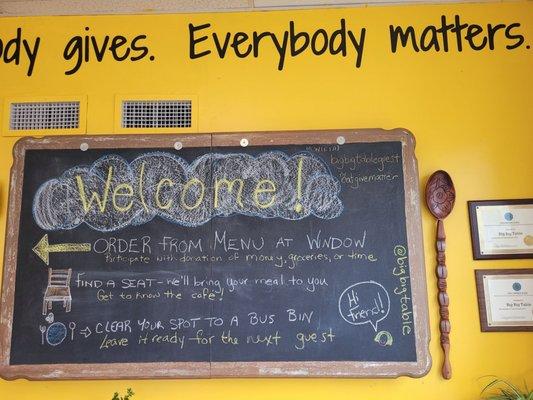 ody gives. Everybody matters.
Wifi:
bigbgtableguest
Welcome!
ORDER FROM MENU AT WINDOW
Participate with donation of money, groceries, or time
FIND A SEAT - we'll bring your meal to you
Get to know the cafe!
CLEAR YOUR SPOT TO A BUS BIN
Leave it ready for the next guest
Hi friend!
@bigbgtable
Big Big Table